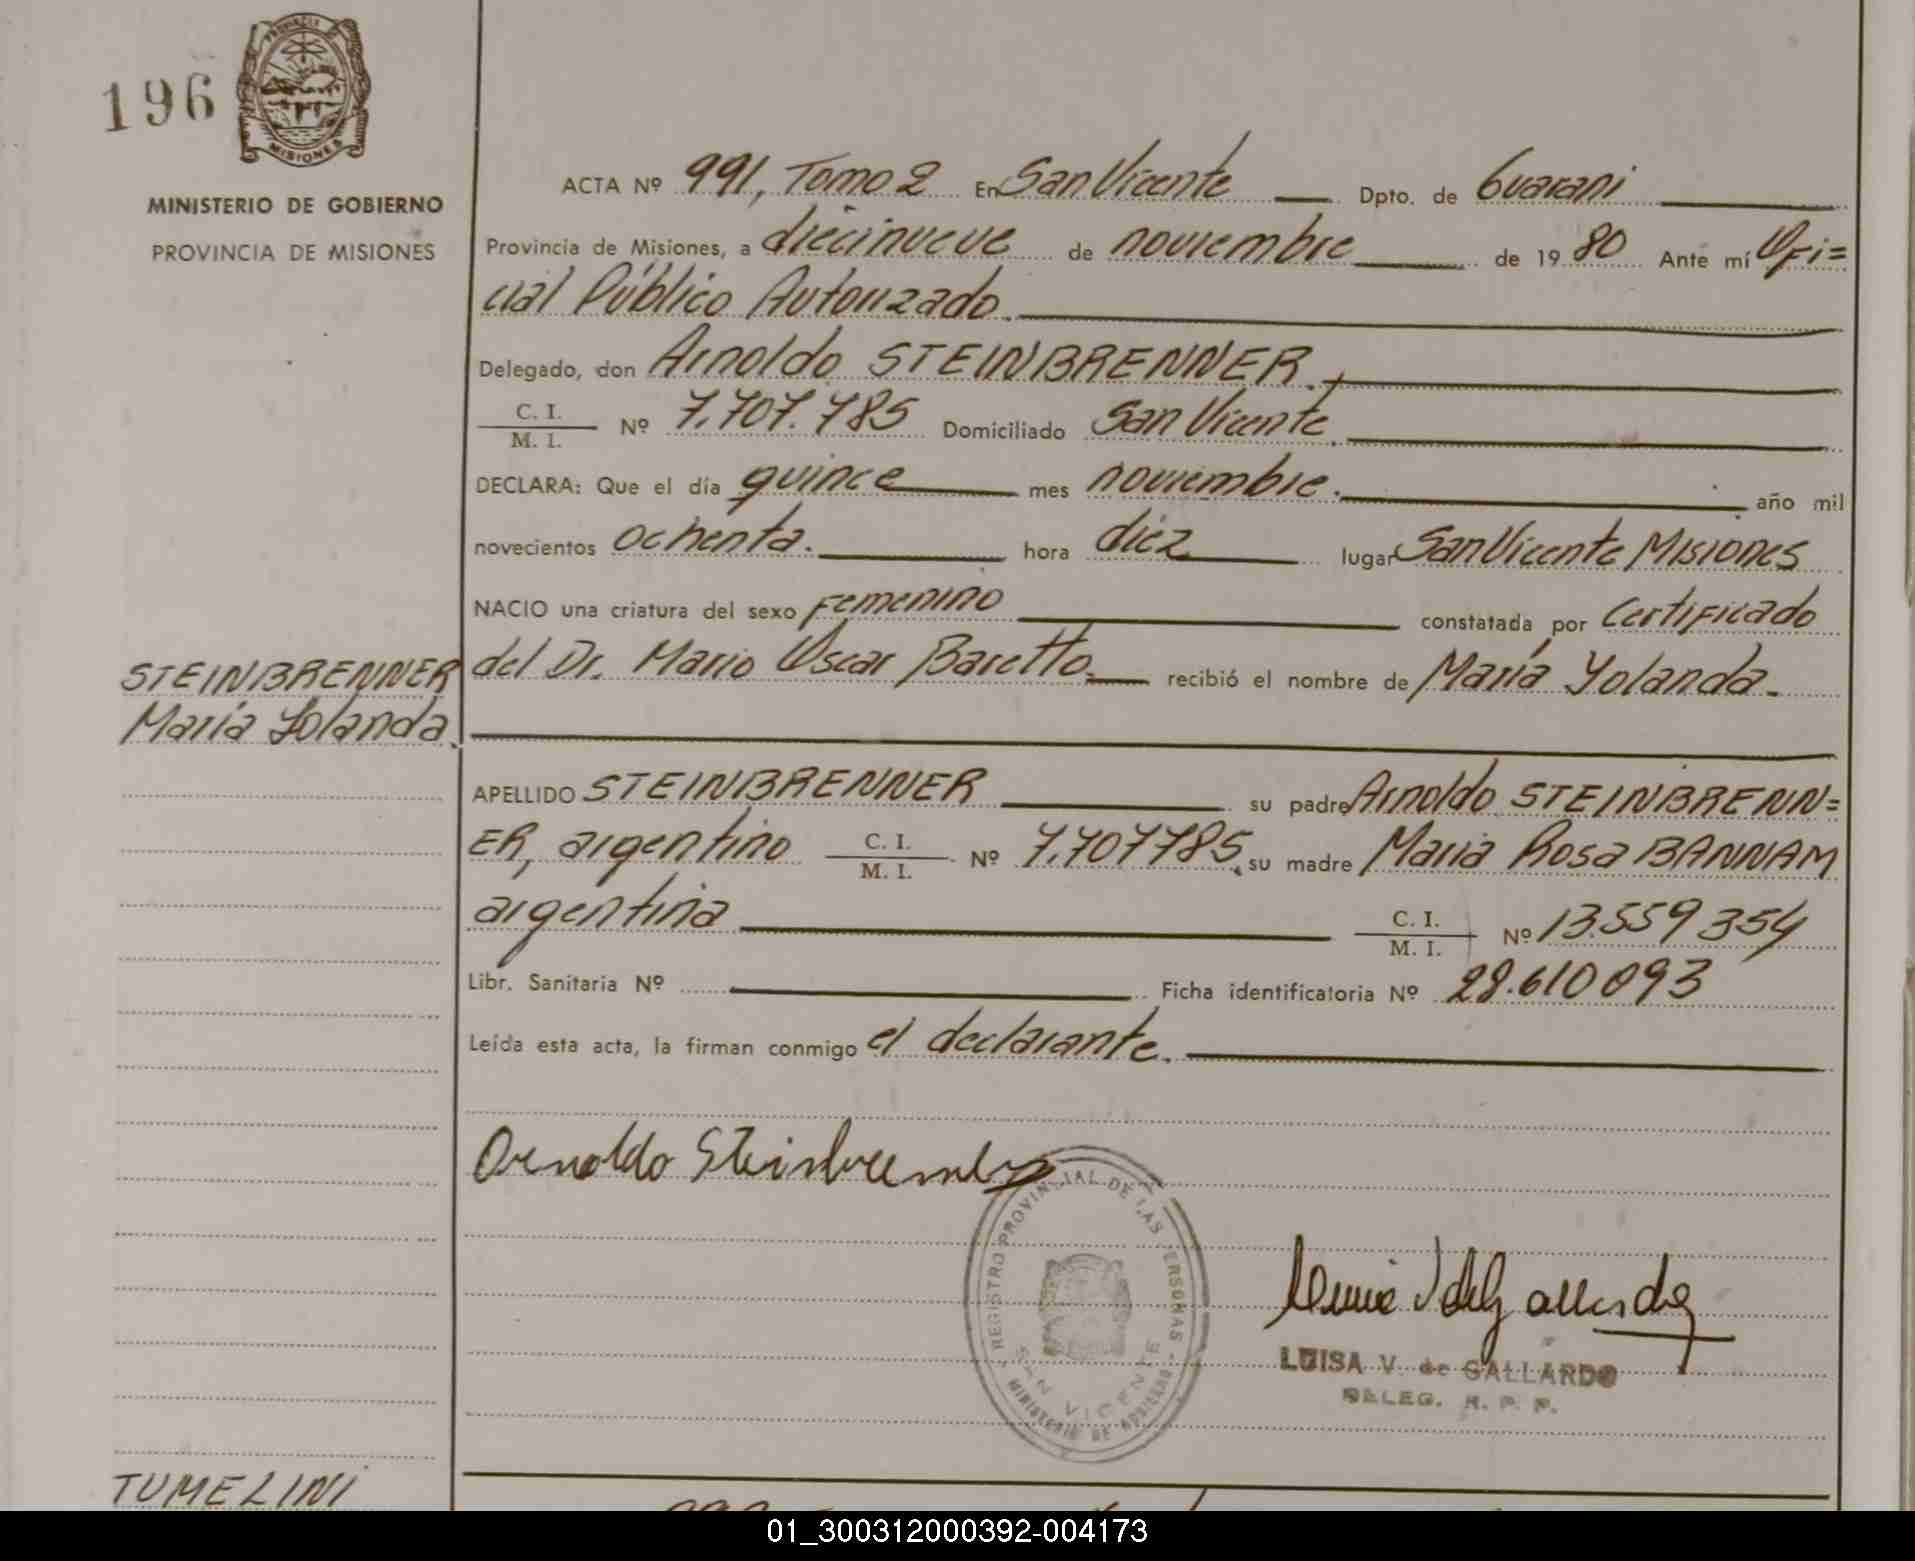 196
PROVINCIA DE
MISIONES
MINISTERIO DE GOBIERNO
PROVINCIA DE MISIONES
ACTA Nº 991, Tomo 2 En San Vicente Dpto. de Guarani
Provincia de Misiones, a diecinueve de noviembre de 19 80 Ante mí Ofi=
cial Público Autorizado.
Delegado, don Arnoldo STEINBRENNER.
C. I.
M. I. Nº 7.707.785 Domiciliado San Vicente.
DECLARA: Que el día quince mes noviembre. año mil
novecientos ochenta. hora diez lugar San Vicente Misiones
NACIO una criatura del sexo femenino constatada por Certificado
del Dr. Mario Oscar Baretto. recibió el nombre de María Yolanda.
STEINBRENNER
María Yolanda.
APELLIDO STEINBRENNER su padre Arnoldo STEINBRENN=
ER, argentino C. I. M. I. Nº 7.707785, su madre Maria Rosa BANNAM
argentina C. I. M. I. Nº 13.559354
Libr. Sanitaria Nº Ficha identificatoria Nº 28.610093
Leída esta acta, la firman conmigo el declarante.
Arnoldo Steinbrenner
REGISTRO PROVINCIAL DE LAS PERSONAS
SAN VICENTE
MINISTERIO DE GOBIERNO
LUISA V. de GALLARDO
DELEG. R. P. P.
TUMELINI
01_300312000392-004173